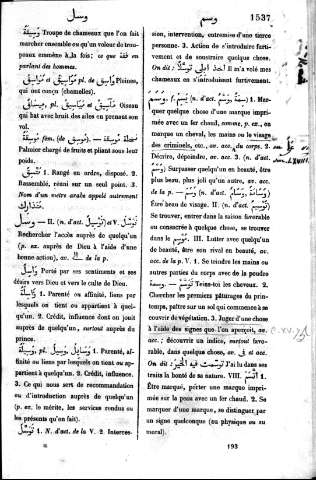 وسل
وسم
1537
وَسِيقَةٌ Troupe de chameaux que l'on fait
marcher ensemble ou qu'un voleur de trou-
peaux emmène à la fois; ce que قافلة en
parlant des hommes.
pl. de مَوَاسِيقُ et مَوَاسِقُ Pleines,
qui ont conçu (chamelles).
مِيسَاقٌ, pl. مَآسِيقُ et مَيَاسِيقُ Oiseau
qui bat avec bruit des ailes en prenant son
vol.
Palmier chargé de fruits et pliant sous leur
poids.
مُتَّسِقٌ 1. Rangé en ordre, disposé. 2.
Rassemblé, réuni sur un seul point. 3.
Nom d'un mètre arabe appelé autrement
مُتَدَارَكٌ
وسل — II. (n. d'act. تَوْسِيلٌ) et V. تَوَسَّلَ
Rechercher l'accès auprès de quelqu'un
(p. ex. auprès de Dieu à l'aide d'une
bonne action), av. الى de la p.
وَاسِلٌ Porté par ses sentiments et ses
désirs vers Dieu et vers le culte de Dieu.
وَاسِلَةٌ 1. Parenté ou affinité, liens par
lesquels on tient ou appartient à quel-
qu'un. 2. Crédit, influence dont on jouit
auprès de quelqu'un, surtout auprès du
prince.
وَسِيلَةٌ, pl. وَسَائِلُ, وَسِيلٌ, وُسُلٌ 1. Parenté, af-
finité ou liens par lesquels on tient ou ap-
partient à quelqu'un. 2. Crédit, influence.
3. Ce qui nous sert de recommandation
ou d'introduction auprès de quelqu'un
(p. ex. le mérite, les services rendus ou
les présents qu'on fait).
تَوَسُّلٌ 1. N. d'act. de la V. 2. Interces-
sion, intervention, entremise d'une tierce
personne. 3. Action de s'introduire furti-
vement et de soustraire quelque chose.
On dit: أخذ ابلى توسلا Il m'a volé mes
chameaux en s'introduisant furtivement.
وَسَمَ, f. يَسِمُ (n. d'act. وَسْمٌ, سِمَةٌ) 1. Mar-
quer quelque chose d'une marque impri-
mée avec un fer chaud, comme, p. ex., on
marque un cheval, les mains ou le visage
des criminels, etc., av. acc. du corps. 2.
Décrire, dépeindre, av. acc. 3. (n. d'act.
وَسْمٌ) Surpasser quelqu'un en beauté, être
plus beau, plus joli qu'un autre, av. acc.
de la p. — وَسُمَ (n. d'act. وَسَامٌ, وَسَامَةٌ)
Être beau de visage. II. (n. d'act. تَوْسِيمٌ)
Se trouver, entrer dans la saison favorable
ou consacrée à quelque chose, se trouver
dans le مَوْسِم. III. Lutter avec quelqu'un
de beauté, être son rival en beauté, av.
acc. de la p. V. 1. Se teindre les mains ou
autres parties du corps avec de la poudre
وسمة — Teins-toi les cheveux. 2.
Chercher les premiers pâturages du prin-
temps, paître sur un sol qui commence à se
couvrir de végétation. 3. Juger d'une chose
à l'aide des signes que l'on aperçoit, av.
acc.; découvrir un indice, surtout favo-
rable, dans quelque chose, av. في et acc.
On dit: توسمت فيه الخير J'ai lu dans ses
traits la bonté de sa nature. VIII. اتّسم 1.
Être marqué, porter une marque impri-
mée sur la peau avec un fer chaud. 2. Se
marquer d'une marque, se distinguer par
un signe quelconque (au physique ou au
moral).
193